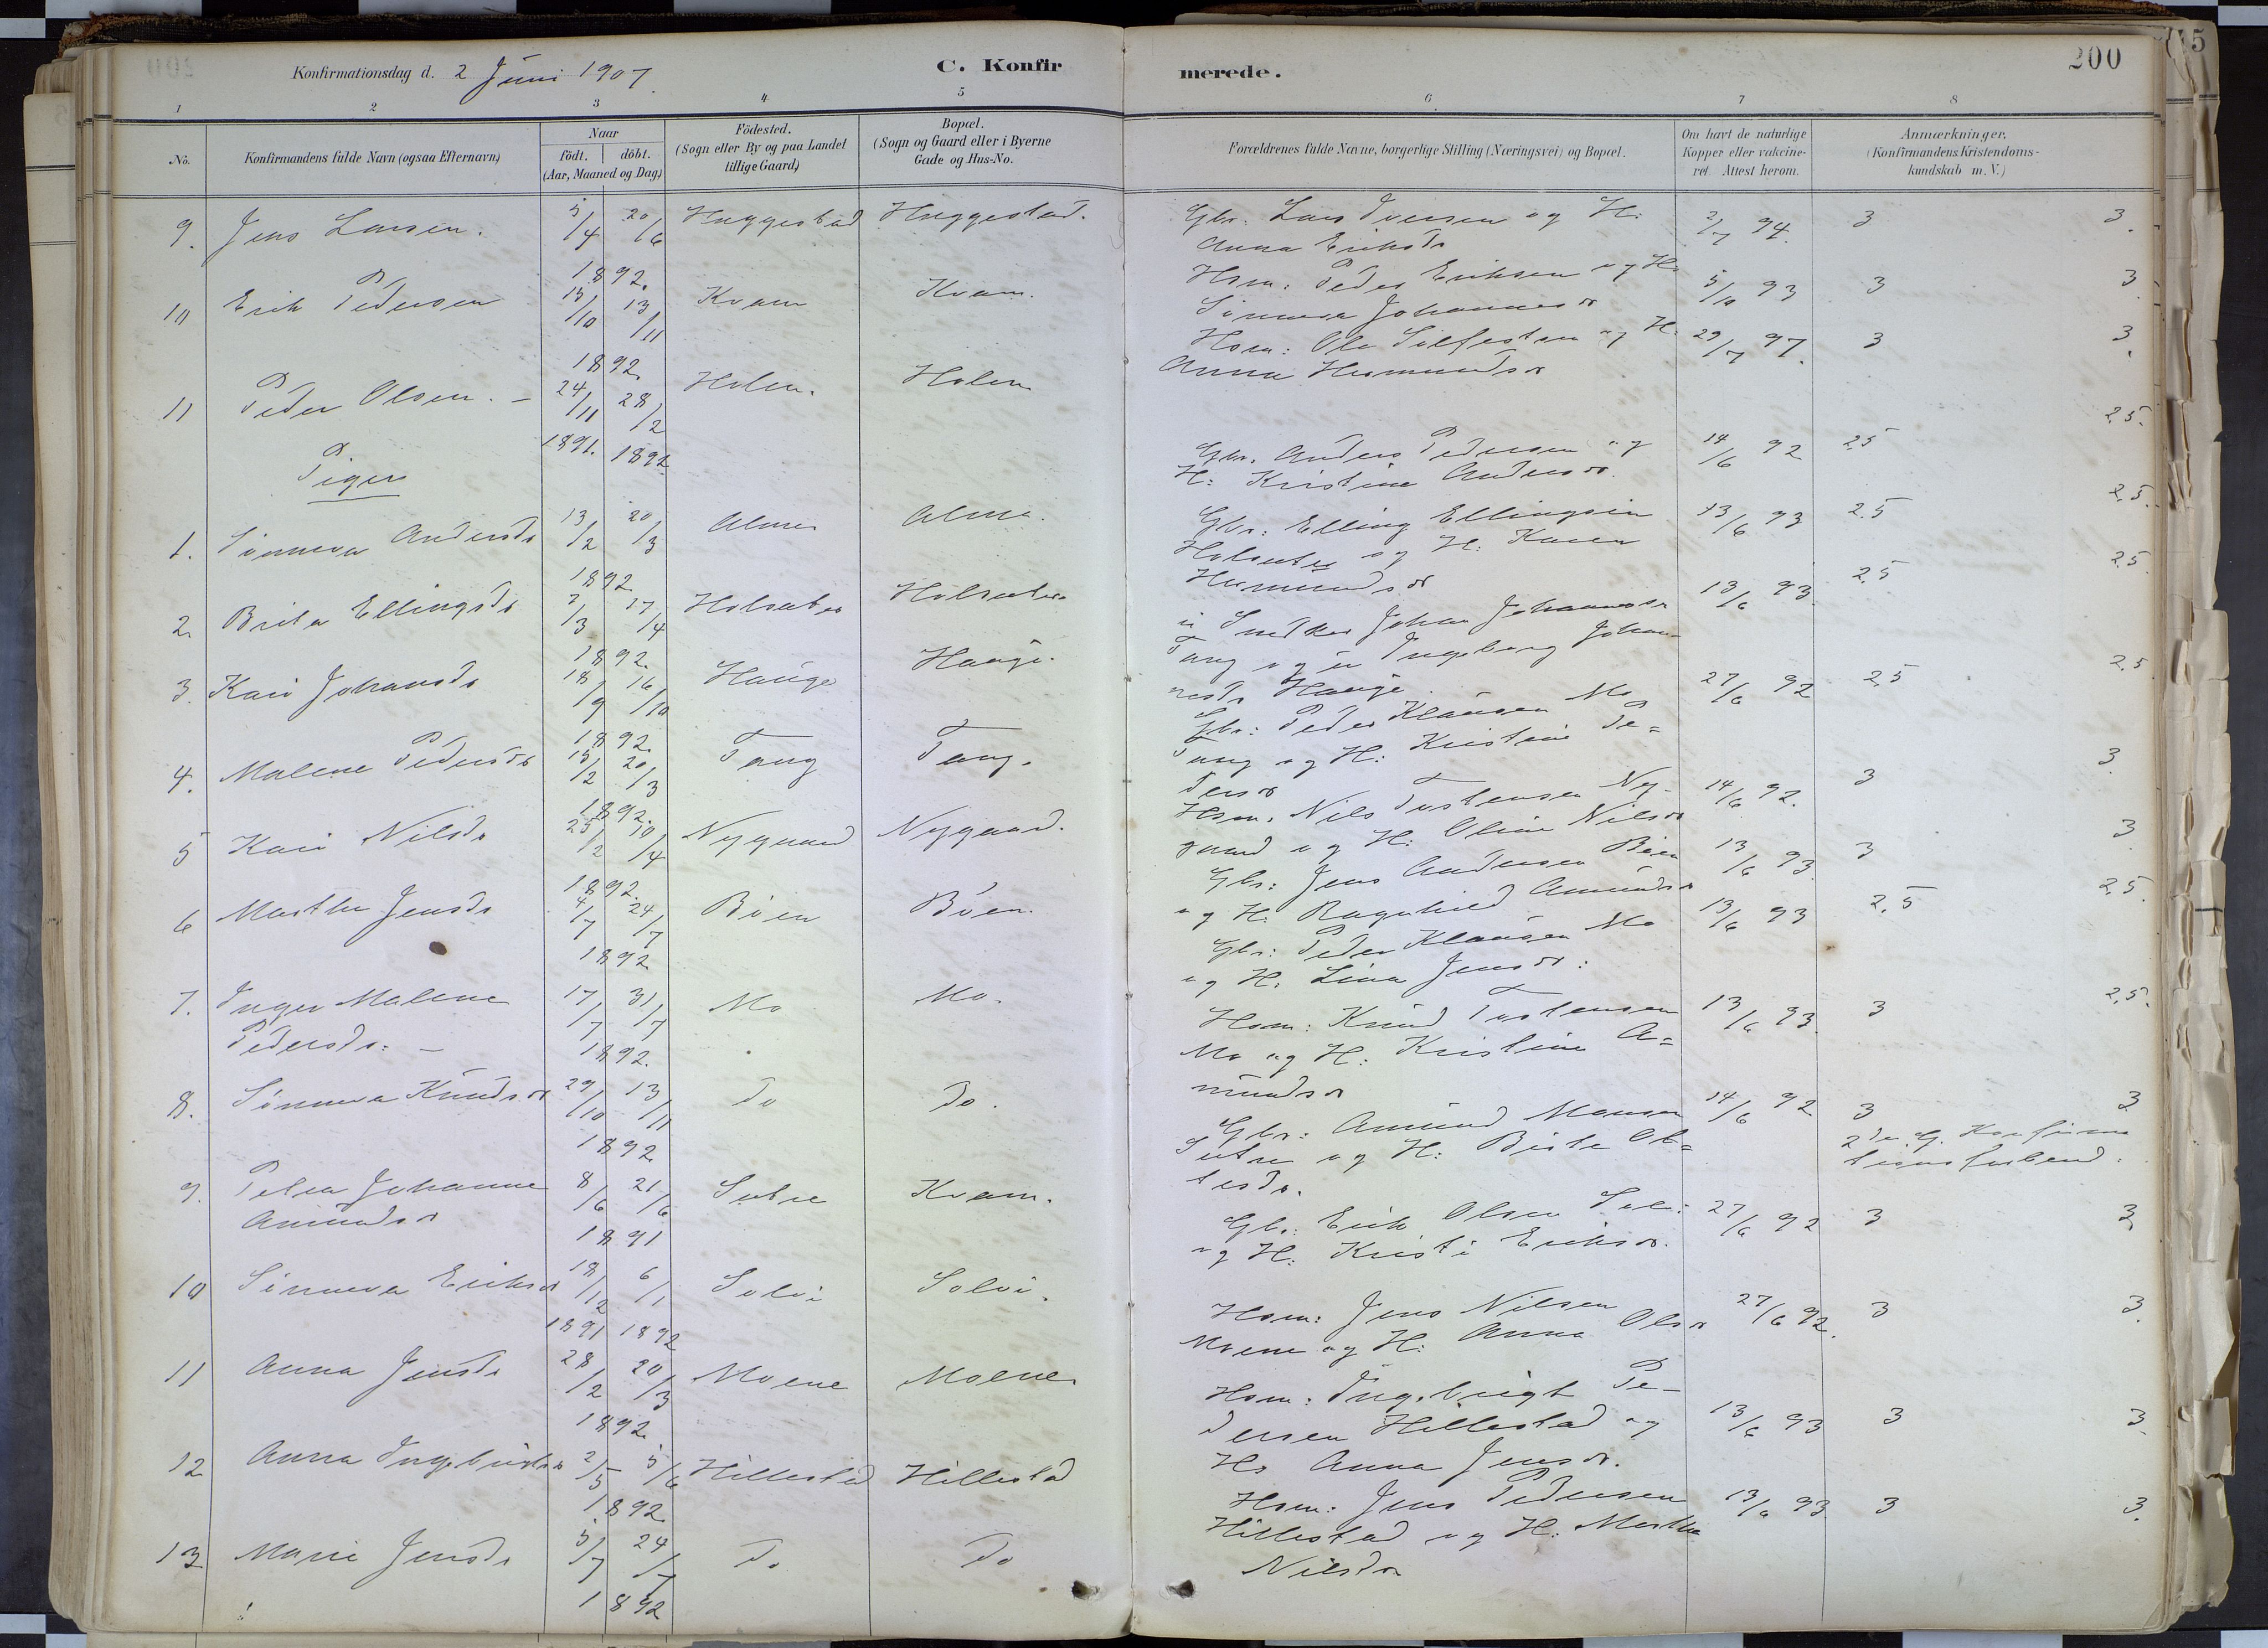 Konfirmationsdag d. 2 Juni 1907.
C. Konfirmerede.
200
1 2 3 4 5 6 7 8
No.
Konfirmandens fulde Navn (ogsaa Efternavn)
Naar
födt. döbt.
(Aar, Maaned og Dag)
Födested.
(Sogn eller By og paa Landet
tillige Gaard)
Bopæl.
(Sogn og Gaard eller i Byerne
Gade og Hus-No.
Forældrenes fulde Navne, borgerlige Stilling (Næringsvei) og Bopæl.
Om havt de naturlige
Kopper eller vakcine-
ret. Attest herom.
Anmærkninger.
(Konfirmandens Kristendoms-
kundskab m. V.)
9. Jens Larsen. 5/4 20/6 Huggestad Huggestad. Gbr. Lars Iversen og H: 2/7 94. 3 3.
1892. Anna Eriksdr
10 Erik Pedersen 15/10 13/11 Kvam Kvam. Hsm: Peder Eriksen og H: 5/10 93 3 3
1892. Sönneva Johannesdr
11 Peder Olsen. – 24/11 28/2 Holen. Holen Hsm: Ole Silfesten og H. 29/7 97. 3 3.
1891. 1892 Anna Hermundsdr
Piger
1. Sönneva Andersdr 13/2 20/3 Alme Alme. Gbr. Anders Pedersen og 14/6 92 2.5 2.5.
1892 H: Kristine Andersdr.
2. Brita Ellingsdr 3/3 17/4 Holsæter Holsæter Gbr: Elling Ellingsen 13/6 93 2.5 2.5.
1892. Holsæter og H: Karen
Hermundsdr
3. Kari Johansdr 18/9 16/10 Hauge Hauge. u Snedker Johan Johannesen 13/6 93. 2.5 2.5
1892. Tang og u Ingeborg Johan-
nesdr Hauge
4. Malene Pedersdr 15/2 20/3 Tang Tang. Gbr: Peder Klausen Mo 27/6 92 2.5 2.5
1892. Tang og H: Kristine Pe=
dersdr
5 Kari Nilsdr 25/2 10/4 Nygaard Nygaard. Hsm. Nils Tostensen Ny- 14/6 92. 3 3.
1892. gaard og H: Oline Nilsdr
6 Marthe Jensdr 4/7 24/7 Böen Böen. Gbr: Jens Andersen Böen 13/6 93. 3 3.
1892 og H: Ragnhild Amundsdr
7. Inger Malene 17/7 31/7 Mo Mo. Gbr: Peder Klausen Mo 13/6 93 2.5 2.5.
Pedersdr: – 1892. og H. Lina Jensdr:
8. Sönneva Knudsdr 29/10 13/11 Do Do. Hsm: Knud Tostensen 13/6 93. 3 2.5.
1892. Mo og H: Kristine A=
mundsdr
9. Petra Johanne 8/6 21/6 Sætre Kvam. Gbr: Amund Monsen 14/6 92 3 3
Amundsdr 1891 Sætre og H: Birte Ot= 2den G. Konfirma
tesdr. tionsforbered.
10 Sönneva Eriksdr 18/12 6/1 Solvi Solvi. Gbr: Erik Olsen Solvi 27/6 92 3 3
1891 1892 og H: Kristi Eriksdr.
11 Anna Jensdr 28/2 20/3 Moene Moene Hsm: Jens Nilsen 27/6 92. 3 3.
1892. Moene og H: Anna Olsdr
12 Anna Ingebrigtsdr 2/5 5/6 Hillestad Hillestad Hsm: Ingebrigt Pe- 13/6 93 3 3.
1892. dersen Hillestad og
H: Anna Jensdr.
13 Marie Jensdr 5/7 24/7 Do Do Hsm: Jens Pedersen 13/6 93 3 3.
1892 Hillestad og H: Marthe
Nilsdr